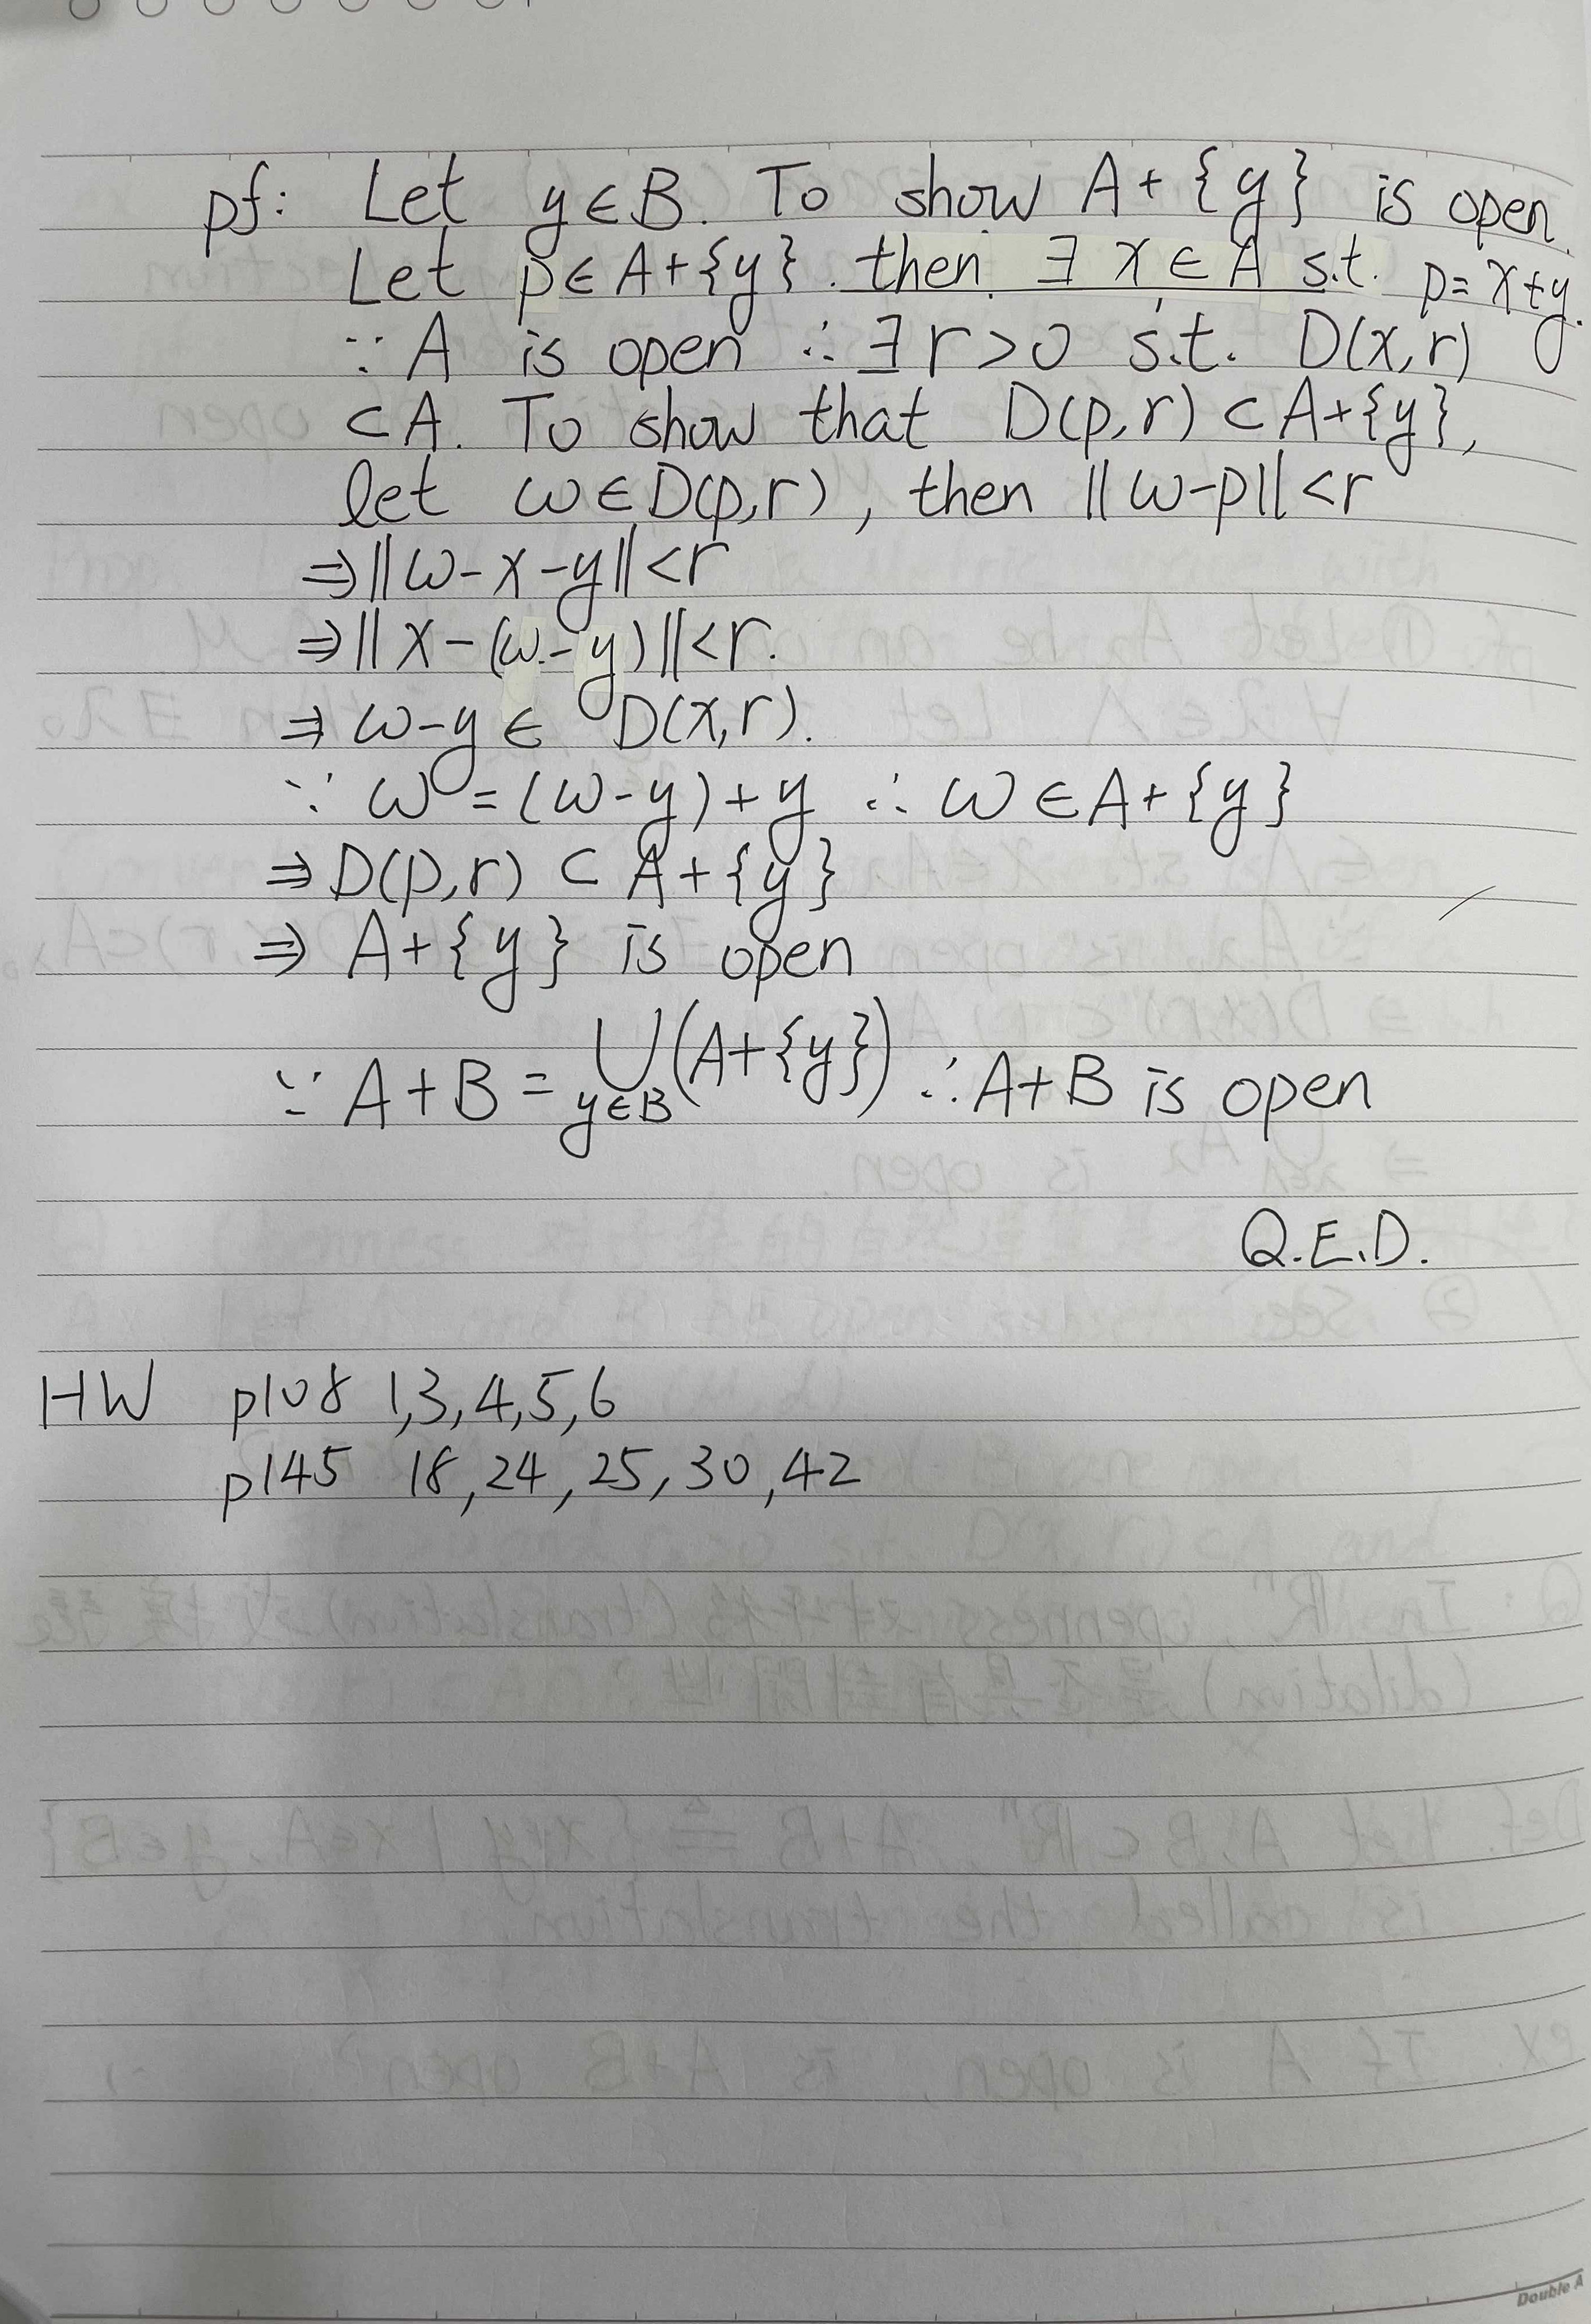 pf: Let y∈B. To show A+{y} is open.
Let p∈A+{y}. then ∃ x∈A s.t. p=x+y.
∵ A is open ∴ ∃ r>0 s.t. D(x,r)
⊂A. To show that D(p,r)⊂A+{y},
let ω∈D(p,r), then ||ω-p||<r
⇒||ω-x-y||<r
⇒||x-(ω-y)||<r.
⇒ω-y∈ D(x,r).
∵ ω=(ω-y)+y ∴ ω∈A+{y}
⇒D(p,r)⊂A+{y}
⇒ A+{y} is open
∵ A+B=⋃_{y∈B}(A+{y}) ∴ A+B is open
Q.E.D.
HW p108 1,3,4,5,6
p145 18,24,25,30,42
Double A